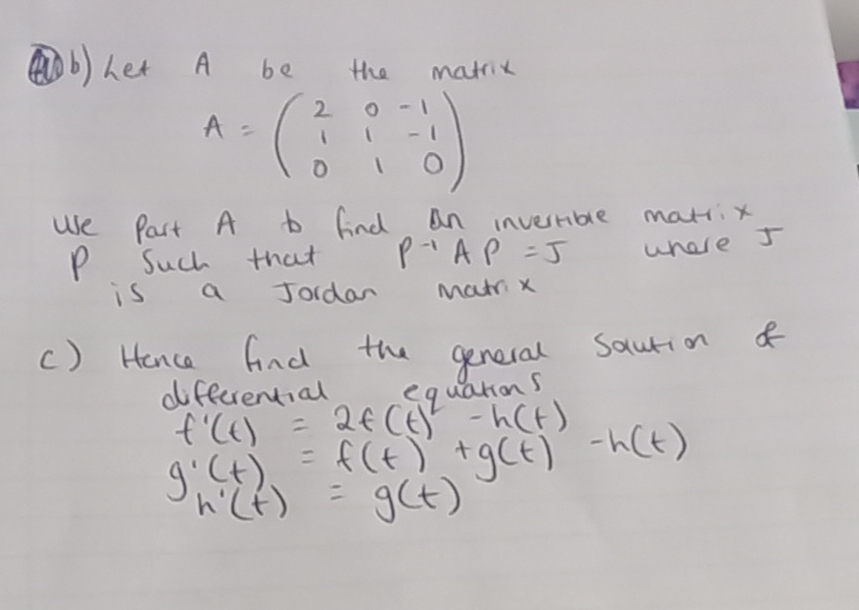 b) Let A be the matrix
A = ( 2 0 -1
1 1 -1
0 1 0 )
Use Part A to find an invertible matrix
P such that P⁻¹ A P = J where J
is a Jordan matrix
c) Hence find the general solution of
differential equations
f'(t) = 2f(t) - h(t)
g'(t) = f(t) + g(t) - h(t)
h'(t) = g(t)